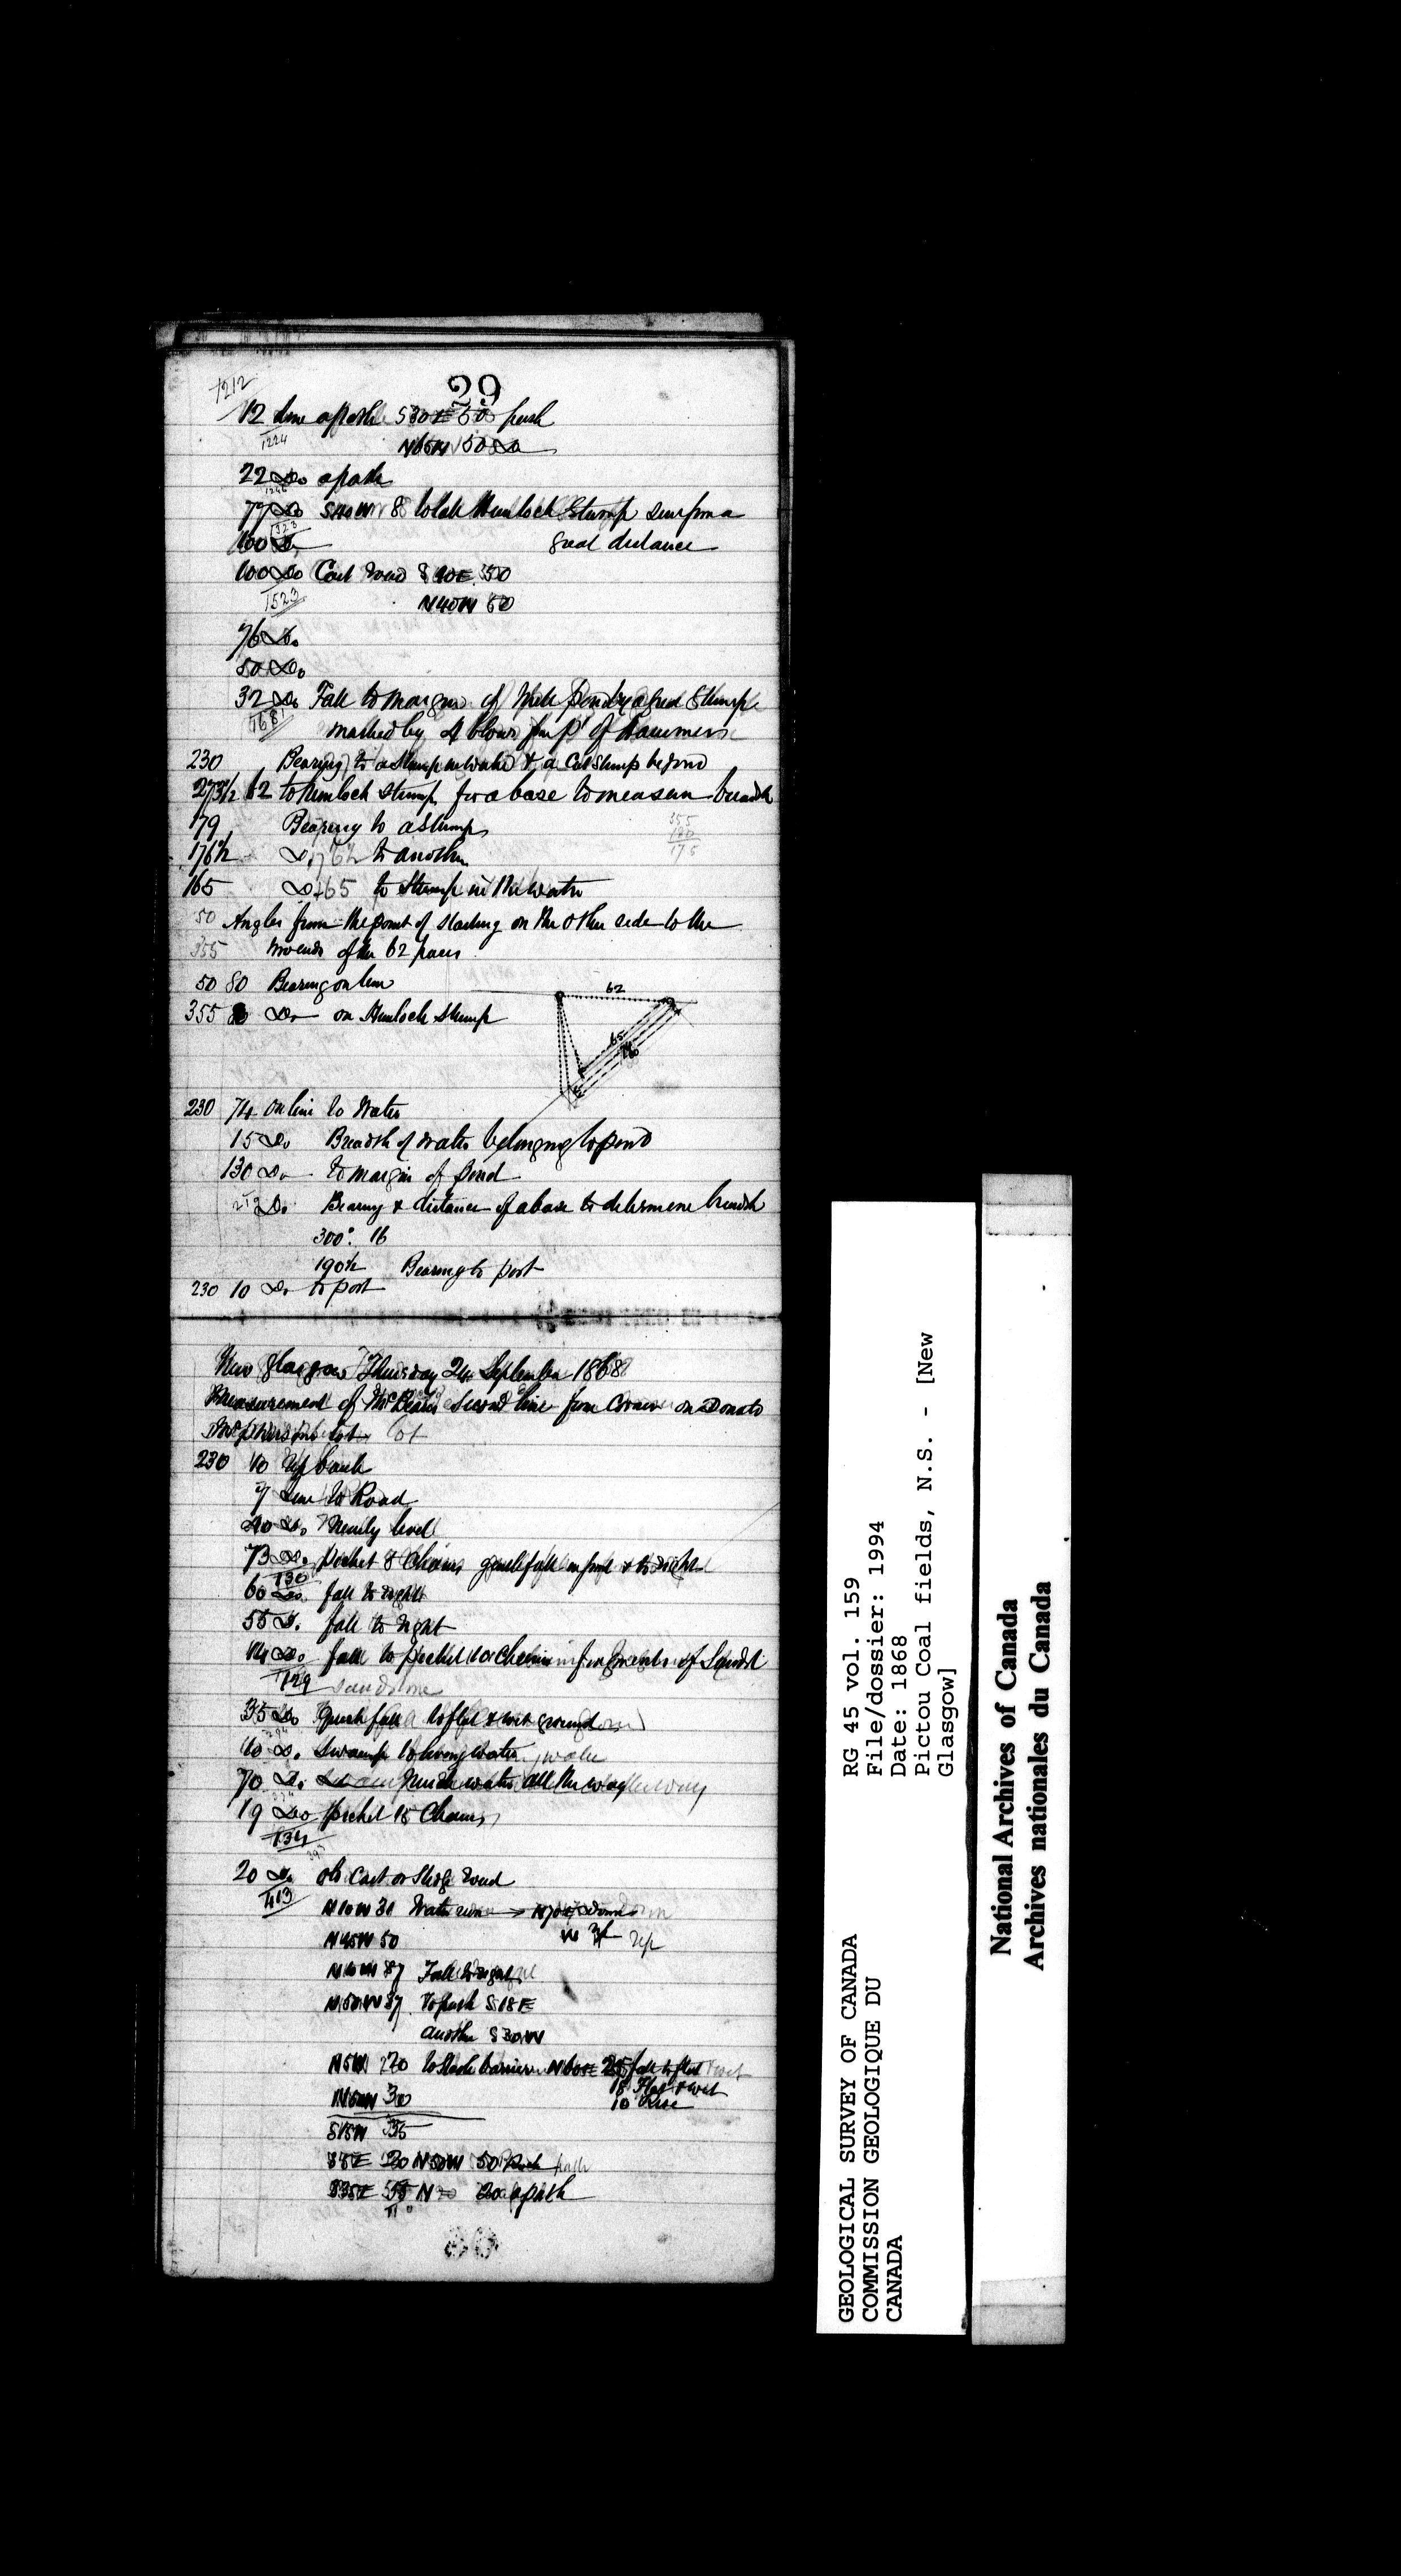 29
1212
12 line a path S30E 50 path
1224
N65W 50 Do
22 Do a path
1246
77 Do S40W 8 to tall Hemlock Stump seen from a
1323
great distance
100 Do
100 Do Cart road S40E 50
1523
N40W 50
76 Do
50 Do
32 Do Fall to margin of Mill pond by a Stump
1681
marked by 4 blows of hammer
230 Bearing to a Stump in water & a Cut Stump beyond
273½ 62 to Hemlock stump for a base to measure breadth
179 Bearing to a stump
355
180
175
176½ Do to another
165 Do 165 to Stump in the water
50 Angles from the point of starting on the other side to the
355 two ends of the 62 paces
50 80 Bearing on line
355 Do on Hemlock Stump
62
65
80
230 74 on line to Water
15 Do Breadth of water belonging to pond
130 Do to margin of pond
213 Do Bearing & distance of a base to determine breadth
300° 16
190½ Bearing to post
230 10 Do to post
New Glasgow Thursday 24 September 1868
Measurement of McBean's Second line from Corner on Donald
McPhersons lot
230 10 Up bank
7 Line to Road
40 Do Nearly level
73 Do picket 8 Chains gentle fall in front & to right
130
60 Do fall to right
55 Do fall to right
14 Do fall to picket Chains fragments of Sandst
129 sandstone
35 Do Gentle fall to flat & wet ground
10 Do Swamp to living water
70 Do water all the way
19 Do picket 18 Chains
134
393
20 Do old Cart or Sledge road
413
N10W 31 Water runs → N70E down
N45W 50 up
N10W 87 Fall to right
N50W 37 To path S18E
another S30W
N5W 170 to barrier N60E 25 fall to flat & wet
18 Flat & wet
N50W 30 10 Rise
S15W 35
S5E 20 N50W 50 path
S35E 55 N 20 a path
30
GEOLOGICAL SURVEY OF CANADA
COMMISSION GEOLOGIQUE DU
CANADA
RG 45 vol. 159
File/dossier: 1994
Date: 1868
Pictou Coal fields, N.S. - [New
Glasgow]
National Archives of Canada
Archives nationales du Canada